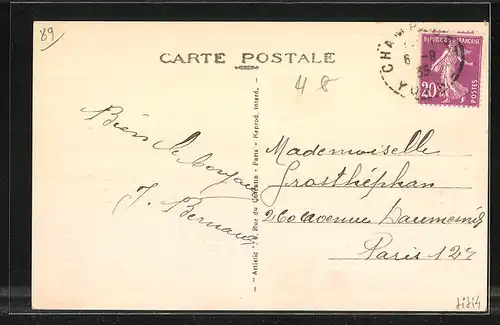 89
CARTE POSTALE
48
CHAM
6 -9
35
YO
REPUBLIQUE FRANÇAISE
20c
POSTES
Bien
J. Bernard
"Artistic" Rue du - Paris - Reprod. interd.
Mademoiselle
Grosthéphan
260 avenue Daumesnil
Paris 12e